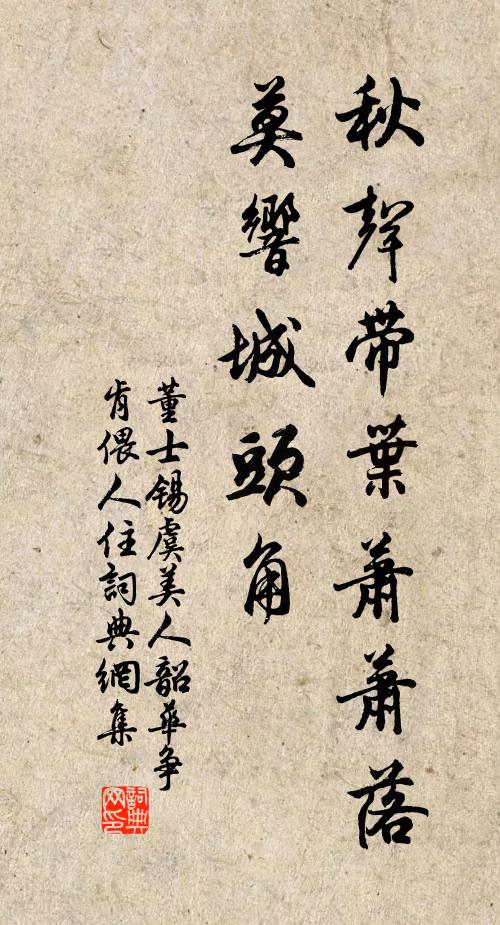 秋聲帶葉蕭蕭落
莫響城頭角
董士錫虞美人韶華爭
肯偎人住詞典網集
詞典网印